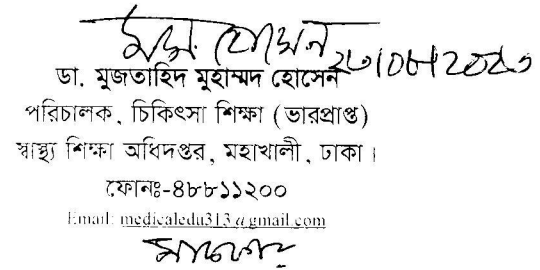 ডা. মুজতাহিদ মুহাম্মদ হোসেন
পরিচালক, চিকিৎসা শিক্ষা (ভারপ্রাপ্ত)
স্বাস্থ্য শিক্ষা অধিদপ্তর, মহাখালী, ঢাকা।
ফোনঃ-৪৮৮১১২০০
Email: medicaledu313@gmail.com